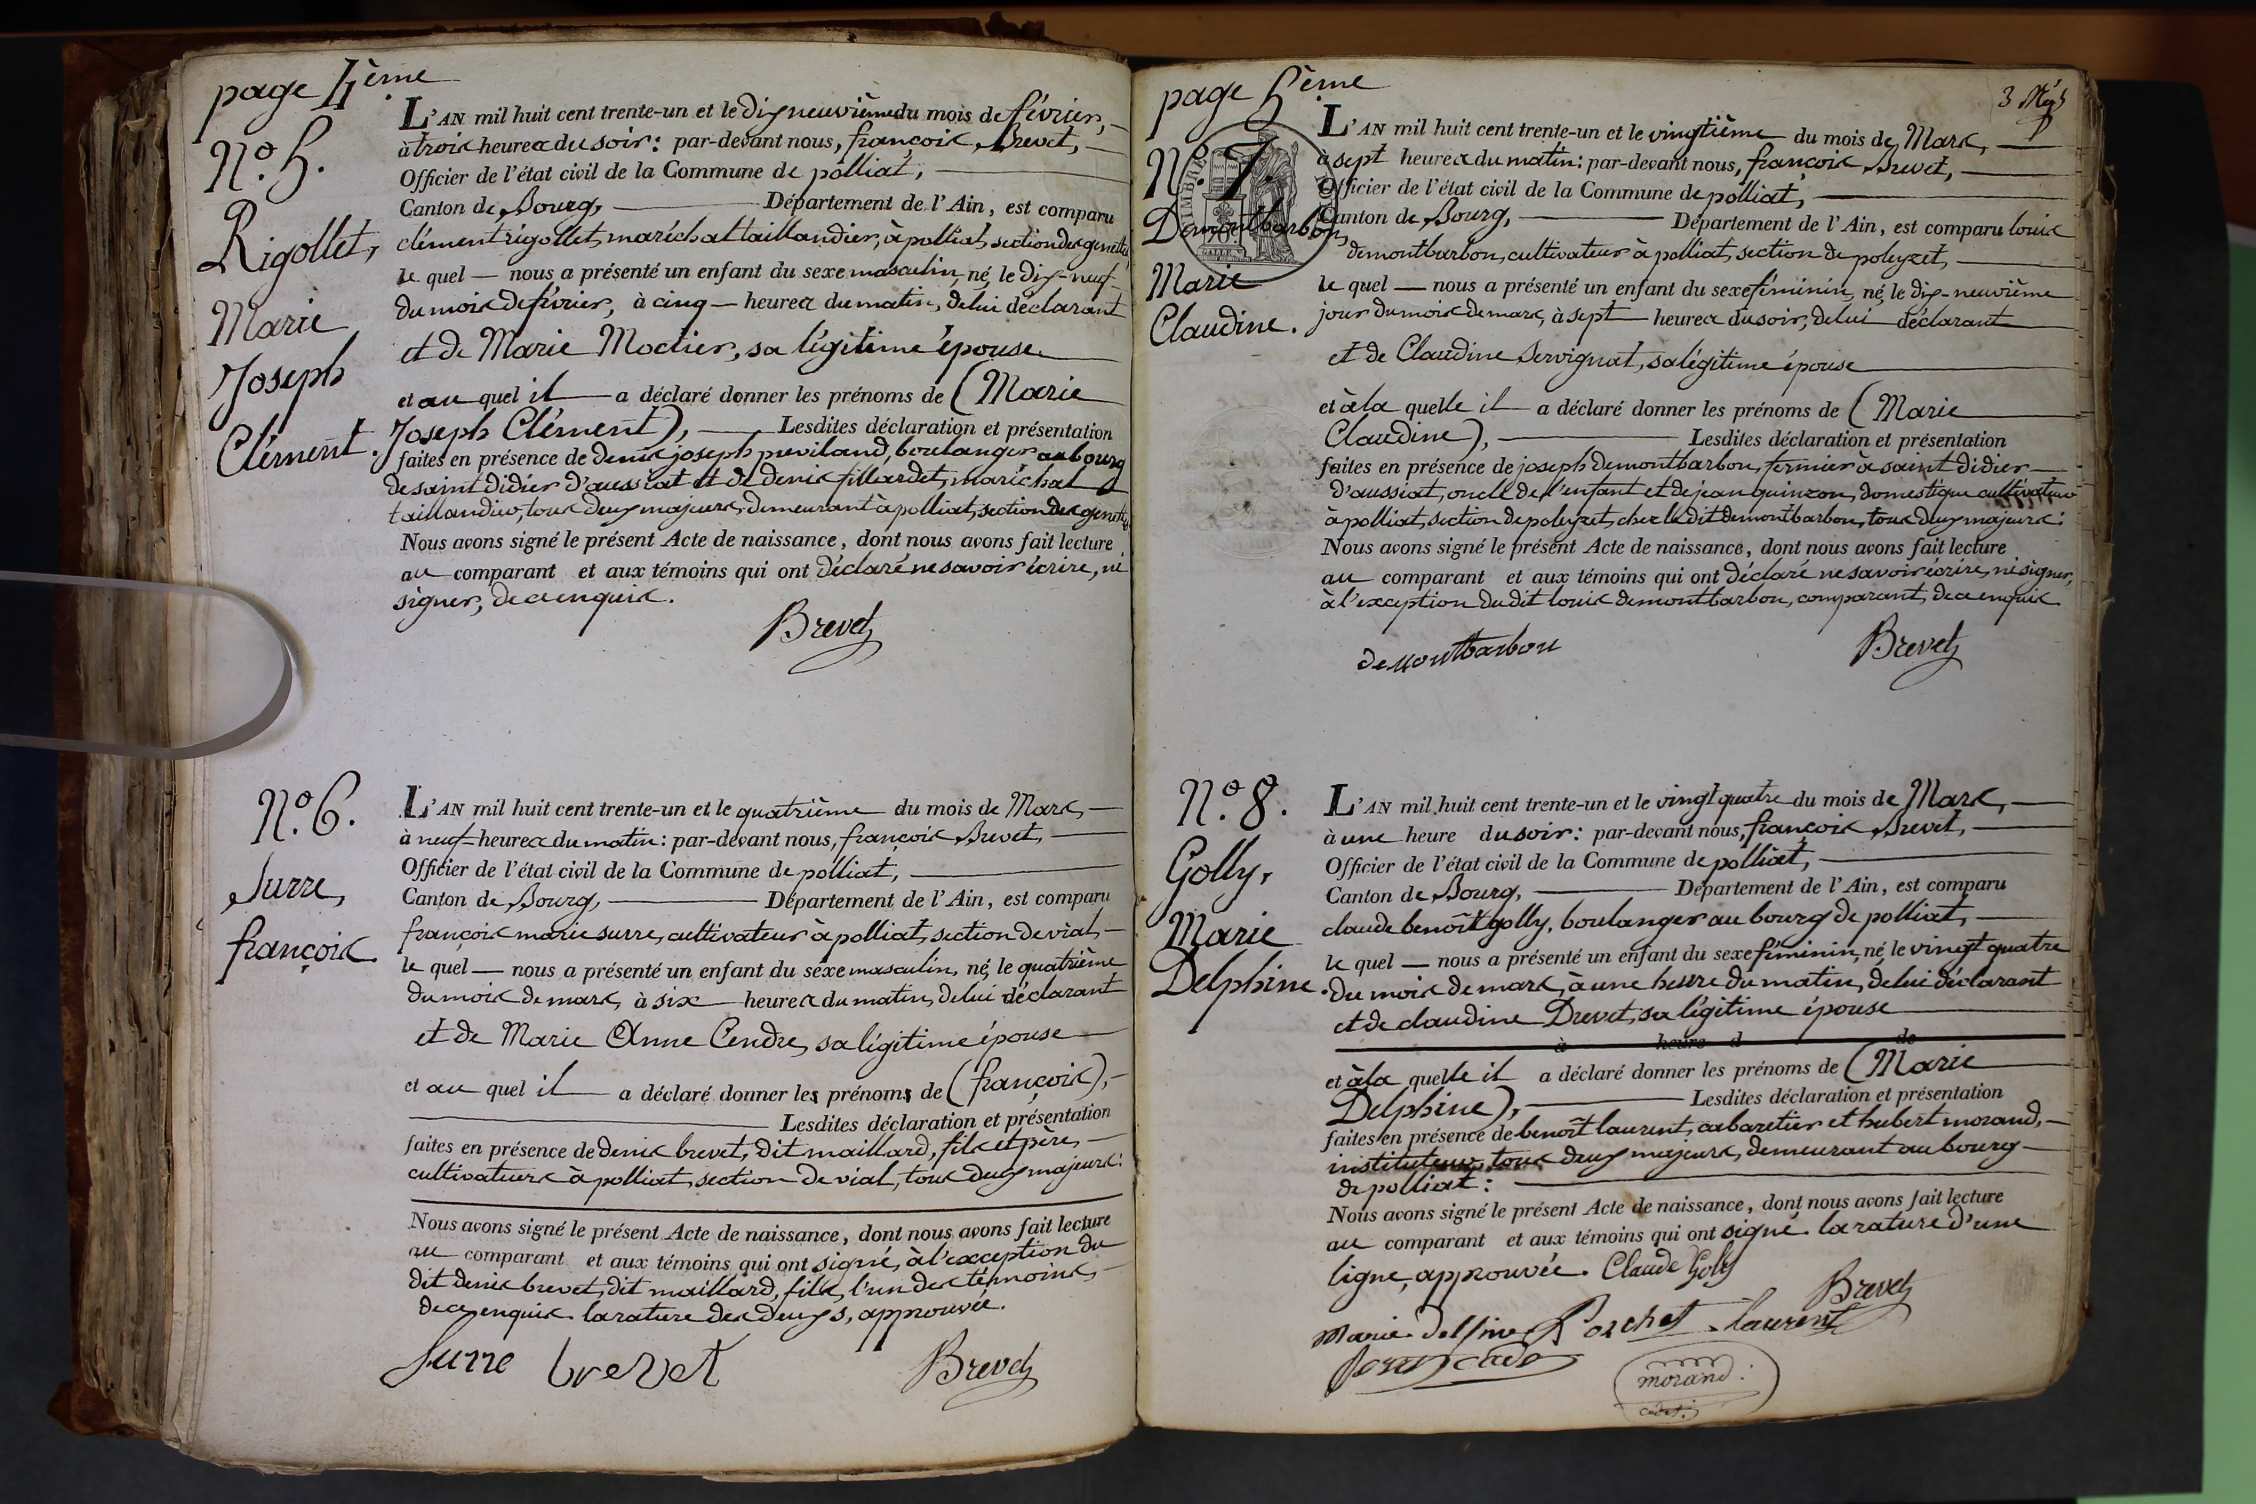 page 4ème
N.o 5.
Rigollet,
Marie
Joseph
Clément.
L'AN mil huit cent trente-un et le dix neuvième du mois de février,
à trois heures du soir : par-devant nous, françois Brevet,
Officier de l'état civil de la Commune de polliat,
Canton de Bourg, Département de l'Ain, est comparu
clément rigollet, maréchal taillandier, à polliat, section des
le quel nous a présenté un enfant du sexe masculin, né, le dix-neuf
du mois de février, à cinq heures du matin, de lui déclarant
et de Marie Moctier, sa légitime épouse
et au quel il a déclaré donner les prénoms de (Marie
Joseph Clément), Lesdites déclaration et présentation
faites en présence de denis joseph boulanger au bourg
de saint didier d'aussiat et de denis fillardet, maréchal
taillandier, tous deux majeurs, demeurant à polliat, section des
Nous avons signé le présent Acte de naissance, dont nous avons fait lecture
au comparant et aux témoins qui ont déclaré ne savoir écrire, ni
signer, de ce enquis.
Brevet
N.o 6.
Surre,
françois.
L'AN mil huit cent trente-un et le quatrième du mois de Mars,
à neuf heures du matin : par-devant nous, françois Brevet,
Officier de l'état civil de la Commune de polliat,
Canton de Bourg, Département de l'Ain, est comparu
françois marie surre, cultivateur à polliat, section de vial,
le quel nous a présenté un enfant du sexe masculin, né, le quatrième
du mois de mars, à six heures du matin, de lui déclarant
et de Marie Anne Cendre, sa légitime épouse
et au quel il a déclaré donner les prénoms de (françois),
Lesdites déclaration et présentation
faites en présence de denis brevet, dit maillard, fils et père,
cultivateurs à polliat, section de vial, tous deux majeurs :
Nous avons signé le présent Acte de naissance, dont nous avons fait lecture
au comparant et aux témoins qui ont signé, à l'exception du
dit denis brevet, dit maillard, fils, l'un des témoins,
de ce enquis. la rature des deux s, approuvée.
Surre brevet Brevet
page 5ème
3
N.o 7.
Demontbarbon,
Marie
Claudine.
L'AN mil huit cent trente-un et le vingtième du mois de Mars,
à sept heures du matin : par-devant nous, françois Brevet,
Officier de l'état civil de la Commune de polliat,
Canton de Bourg, Département de l'Ain, est comparu louis
demontbarbon, cultivateur à polliat, section de poleyzet,
le quel nous a présenté un enfant du sexe féminin, né, le dix-neuvième
jour du mois de mars, à sept heures du soir, de lui déclarant
et de Claudine Servignat, sa légitime épouse
et à la quelle il a déclaré donner les prénoms de (Marie
Claudine), Lesdites déclaration et présentation
faites en présence de joseph demontbarbon, fermier à saint didier
d'aussiat, oncle de l'enfant et de jean quinson, domestique cultivateur
à polliat, section de poleyzet, chez le dit demontbarbon, tous deux majeurs :
Nous avons signé le présent Acte de naissance, dont nous avons fait lecture
au comparant et aux témoins qui ont déclaré ne savoir écrire, ni signer,
à l'exception du dit louis demontbarbon, comparant, de ce enquis
demontbarbon Brevet
N.o 8.
Golly,
Marie
Delphine.
L'AN mil huit cent trente-un et le vingt quatre du mois de Mars,
à une heure du soir : par-devant nous, françois Brevet,
Officier de l'état civil de la Commune de polliat,
Canton de Bourg, Département de l'Ain, est comparu
claude benoît golly, boulanger au bourg de polliat,
le quel nous a présenté un enfant du sexe féminin, né, le vingt quatre
du mois de mars, à une heure du matin, de lui déclarant
et de claudine Drevet, sa légitime épouse
à heure d de
et à la quelle il a déclaré donner les prénoms de (Marie
Delphine), Lesdites déclaration et présentation
faites en présence de benoît laurent, cabaretier et hubert morand,
instituteur, tous deux majeurs, demeurant au bourg
de polliat :
Nous avons signé le présent Acte de naissance, dont nous avons fait lecture
au comparant et aux témoins qui ont signé. la rature d'une
ligne, approuvée. Claude Golly
Brevet
Marie delfine Porchet laurent
morand.
cadet.